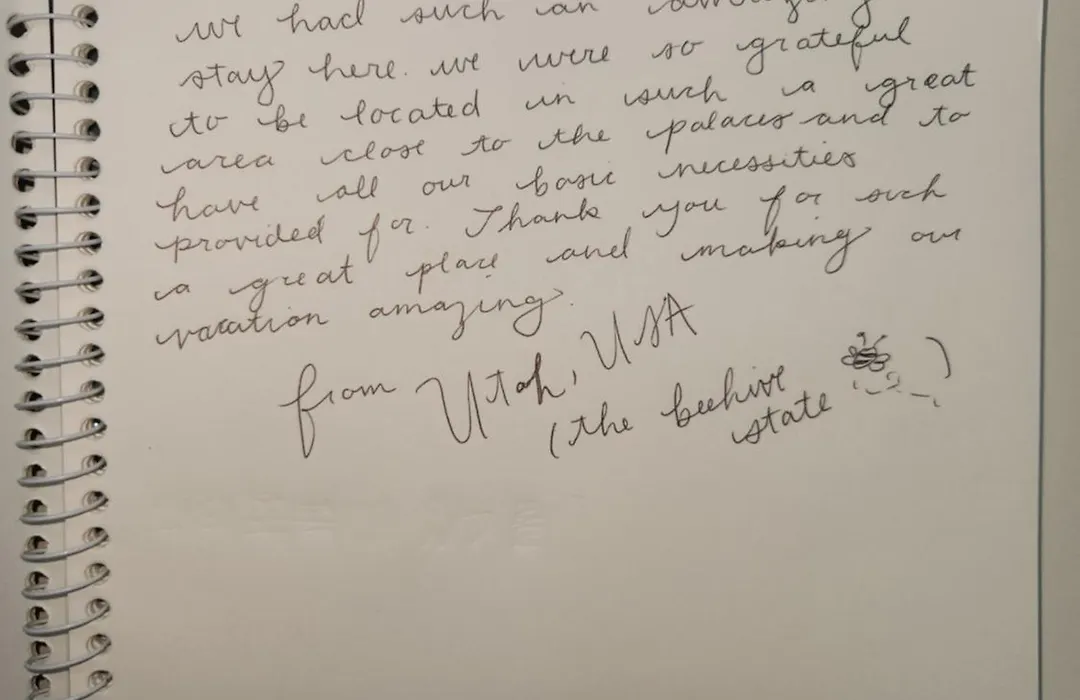 we had such an amazing
stay here. we were so grateful
to be located in such a great
area close to the palaces and to
have all our basic necessities
provided for. Thank you for such
a great place and making our
vacation amazing.
from Utah, USA
(the beehive
state )